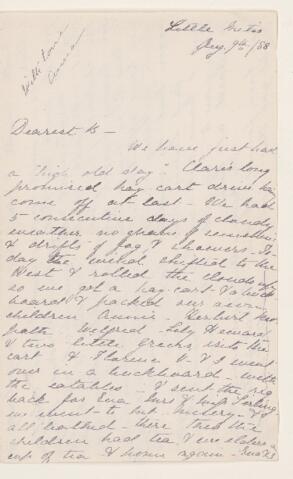 Little Metis
Aug. 9th/88
Dearest B—
We have just had
a "high old day". Clare's long
promised hay cart drive has
come off at last — We had
5 consecutive days of cloudy
weather no gleams of sunshine
& drifts of fog & showers. To
day the wind shifted to the
West & rolled the clouds off
so we got a hay-cart & a buck
board & packed our seven
children Annie Herbert
Wilfred Lily Howard
& two little into the
cart & Florence & I went
over in a buckboard with
the eatables I sent the rig
back for Eva
we went to & 
all bathed — there then the
children had tea, & we elders a
cup of tea & home again